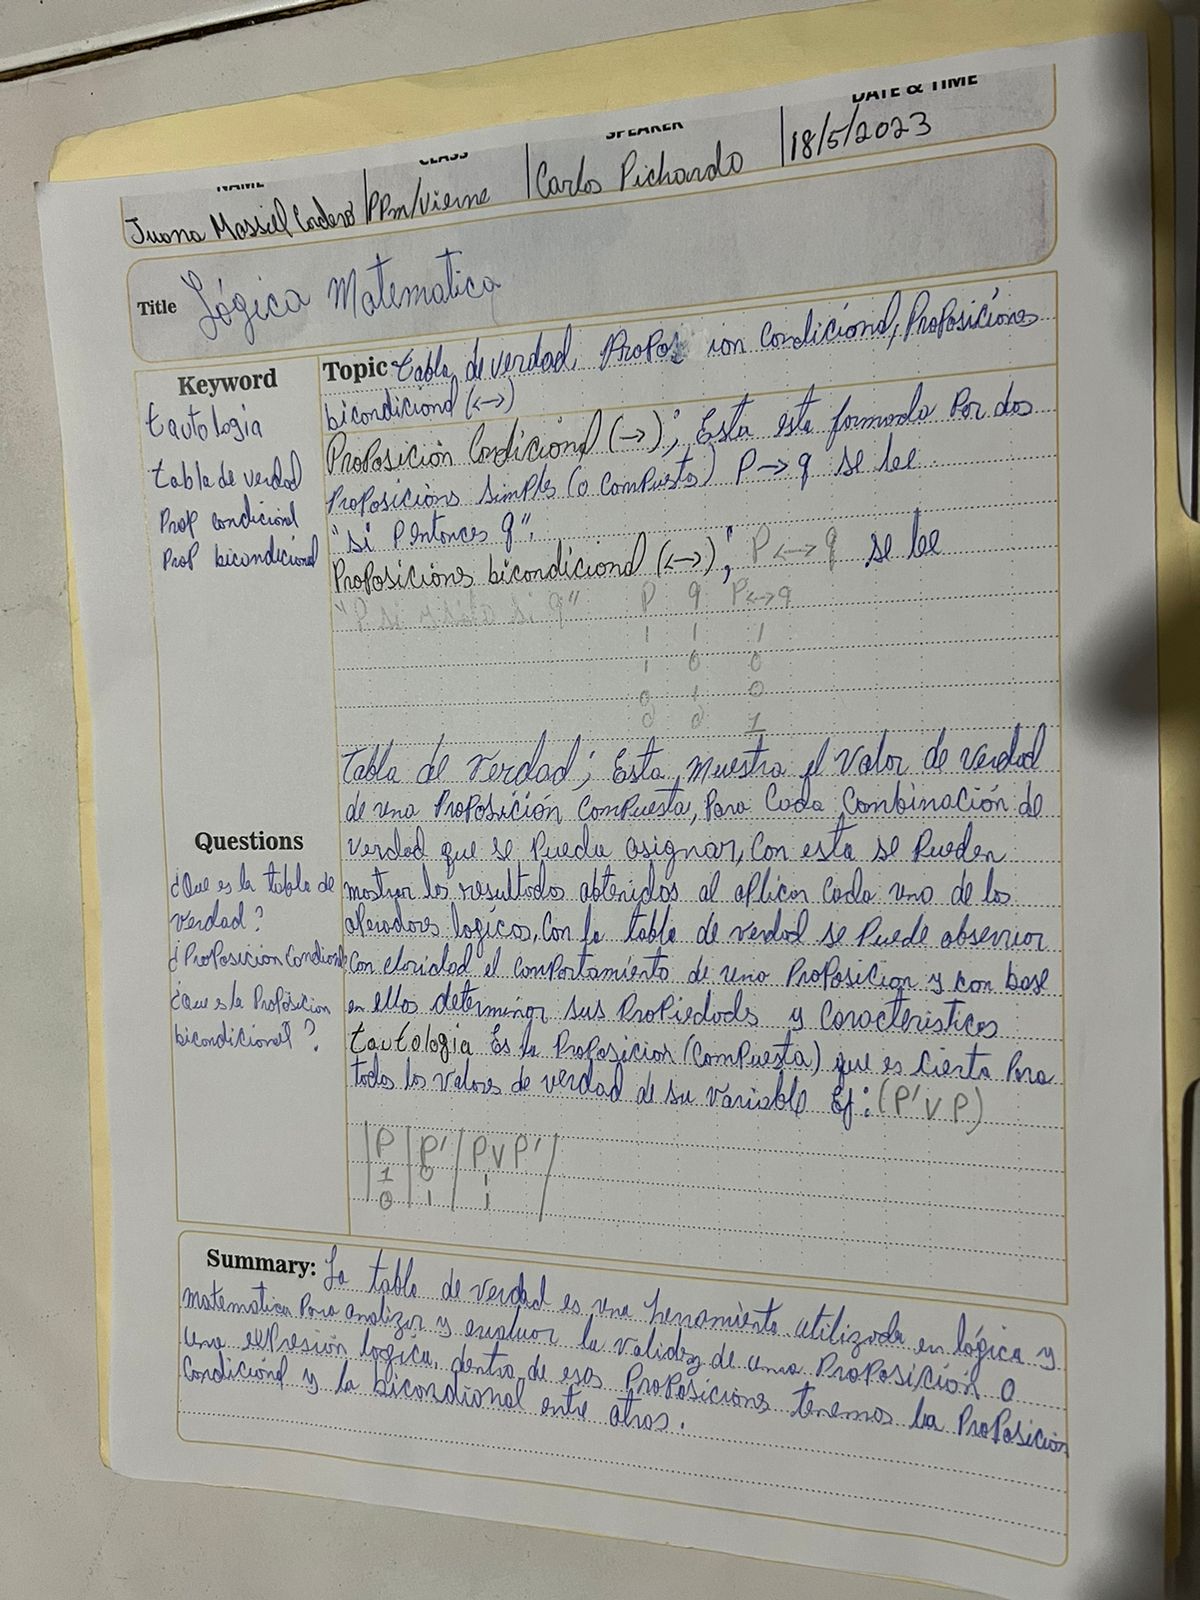 NAME CLASS SPEAKER DATE & TIME
Juana Massiel Cordero PPm/Vierne Carlos Pichardo 18/5/2023
Title Lógica Matematica
Keyword
tautologia
tabla de verdad
Prop condicional
Prop bicondicional
Topic tabla de verdad, Proposicion Condicional, Proposiciones
bicondicional (<->)
Proposición Condicional (->); Esta esta formada Por dos
Proposicions simples (o compuesta) P->q se lee
"si P entonces q".
Proposicions bicondicional (<->); P<->q se lee
"P si y sólo si q" P q P<->q
1 1 1
1 0 0
0 1 0
0 0 1
Tabla de Verdad; Esta muestra el Valor de verdad
de una Proposición Compuesta, Para Cada Combinación de
Verdad que se Pueda asignar, Con esta se Pueden
mostrar los resultados obtenidos al aplicar Cada uno de los
operadores logícos, Con la tabla de verdad se Puede observar
Con claridad el comportamiento de una Proposicion y con base
en ellos determinar sus Propiedades y Caracteristicas
tautologia Es la Proposicion (Compuesta) que es Cierta Para
todos los valores de verdad de su variable Ej: (P' v P)
P P' P v P'
1 0 1
0 1 1
Questions
¿Que es la tabla de
verdad?
¿Proposicion Condicional
¿Que es la Proposicion
bicondicional?
Summary: La tabla de verdad es una herramienta utilizada en lógica y
matematica Para analizar y evaluar la validez de una Proposición o
una expresión logica, dentro de esas Proposicions tenemos la Proposicion
Condicional y la bicondional entre otros.